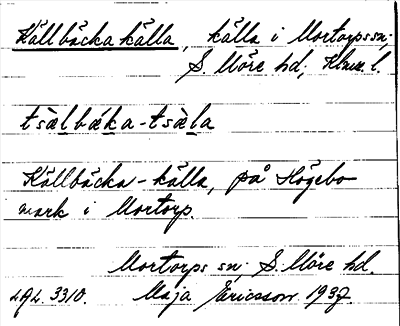 Källbäcka källa, källa i Mortorps sn;
S. Möre hd, Kalmar l.
tsàlbáka-tsàla
Källbäcka-källa, på Högebo
mark i Mortorp.
Mortorps sn; S. Möre hd.
LAL. 3310. Maja Ericsson 1937.